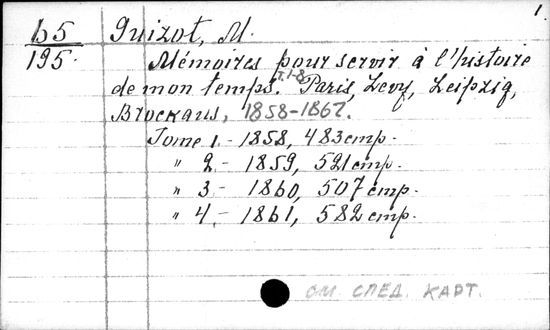 1.
Б5
195.
Guizot, M.
Mémoires pour servir à l'histoire
de mon temps. T.1-8. Paris, Levy, Leipzig,
Brockaus, 1858-1867.
Tome 1. - 1858, 483 стр.
" 2 - 1859, 521 стр.
" 3 - 1860, 507 стр.
" 4. - 1861, 582 стр.
СМ. СЛЕД. КАРТ.